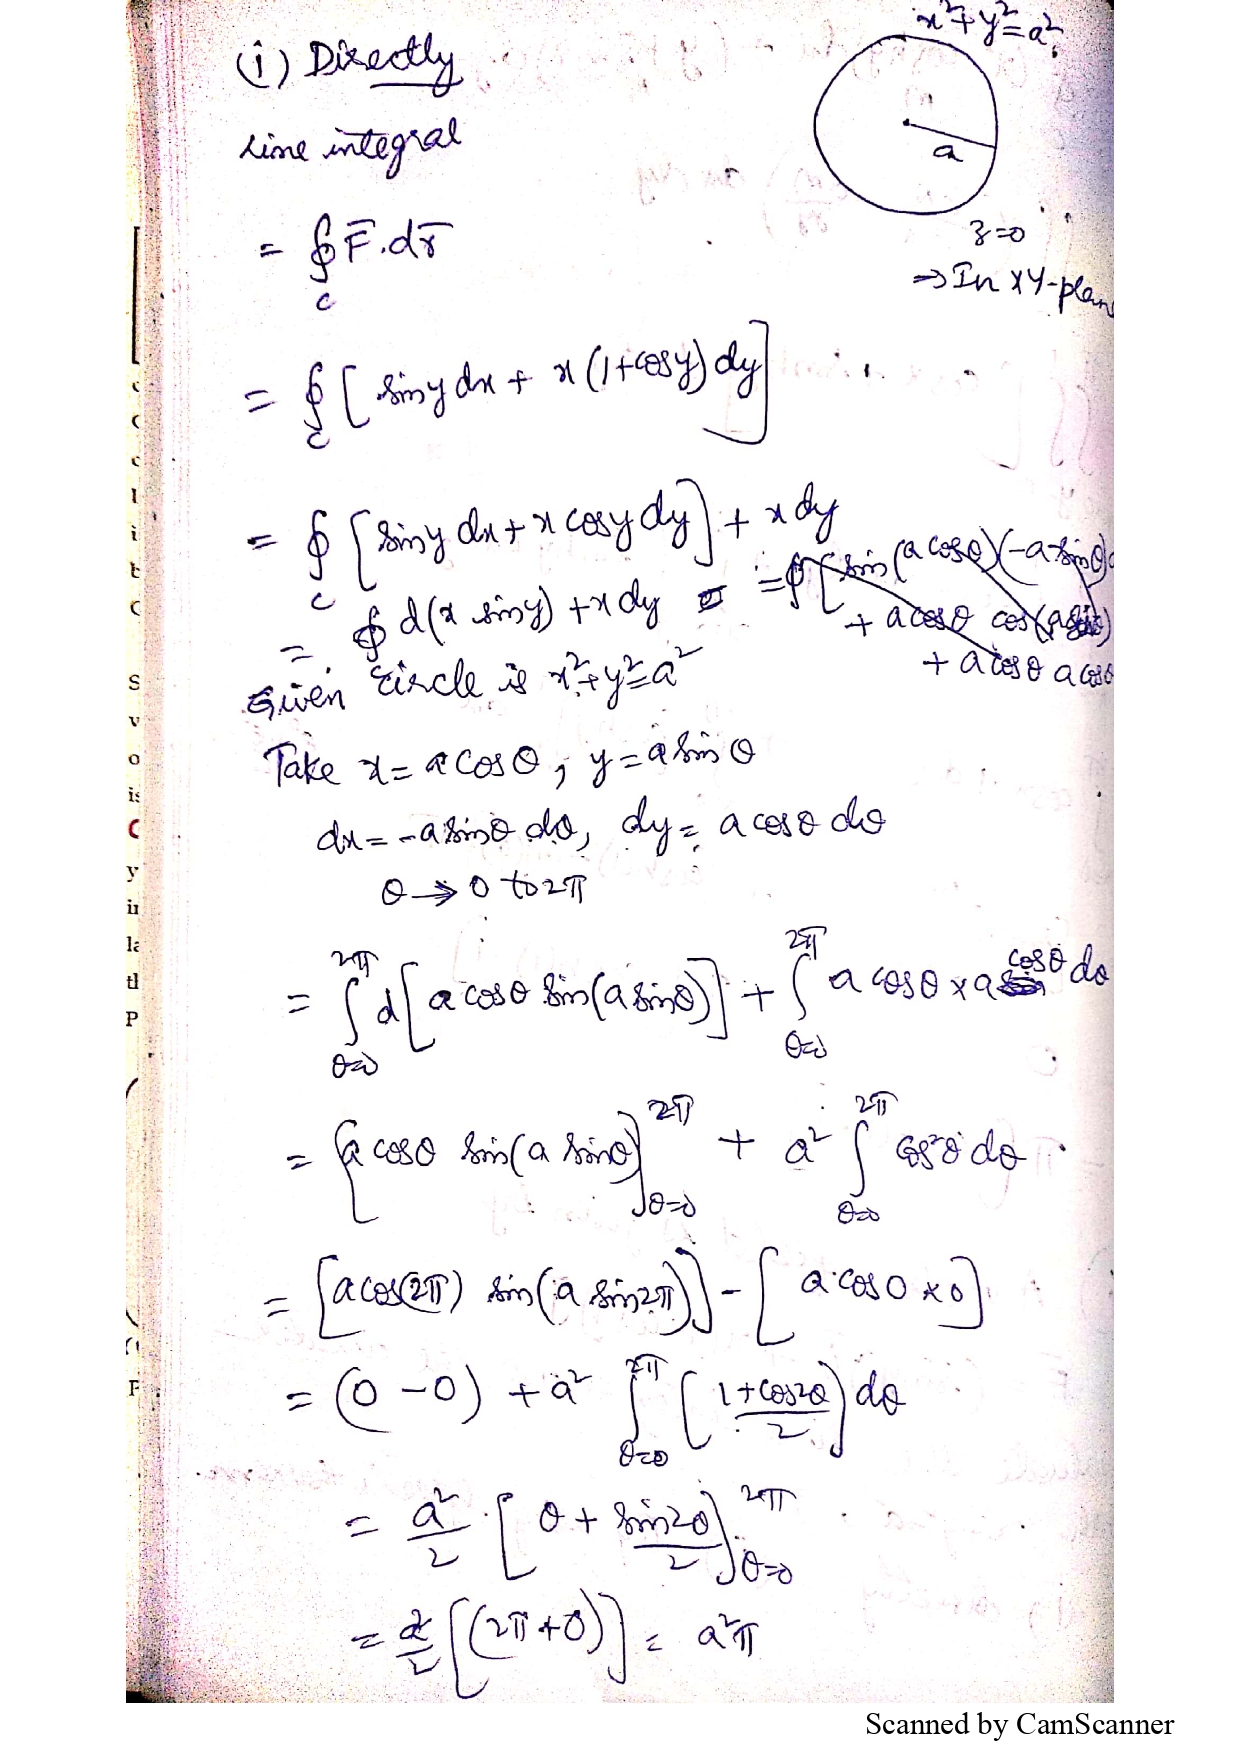 (i) Directly
x²+y²=a²
a
z=0
⇒ In XY-plane
Line integral
= ∮_C F̄.dr̄
= ∮_C [sin y dx + x(1+cos y) dy]
= ∮_C [sin y dx + x cos y dy] + x dy
= ∮ d(x sin y) + x dy
= ∮ [sin(a cosθ)(-a sinθ)
+ a cosθ cos(a sinθ)
+ a cosθ a cosθ
Given circle is x²+y²=a²
Take x = a cosθ, y = a sinθ
dx = -a sinθ dθ, dy = a cosθ dθ
θ → 0 to 2π
= ∫_{θ=0}^{2π} d[a cosθ sin(a sinθ)] + ∫_{θ=0}^{2π} a cosθ × a cosθ dθ
= [a cosθ sin(a sinθ)]_{θ=0}^{2π} + a² ∫_{θ=0}^{2π} cos²θ dθ
= [a cos(2π) sin(a sin2π)] - [a cos0 × 0]
= (0 - 0) + a² ∫_{θ=0}^{2π} [(1+cos2θ)/2] dθ
= a²/2 · [θ + sin2θ/2]_{θ=0}^{2π}
= a²/2 [(2π+0)] = a²π
S
v
o
is
C
y
in
la
tl
P
F
Scanned by CamScanner